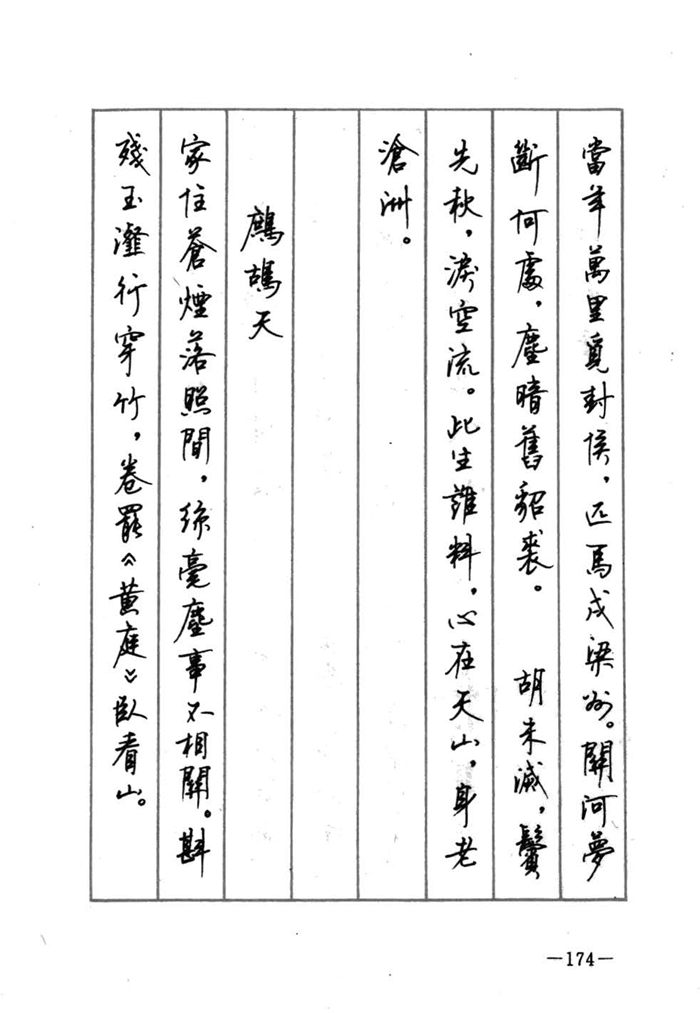 當年萬里覓封侯，匹馬戍梁州。關河夢
斷何處，塵暗舊貂裘。　胡未滅，鬢
先秋，淚空流。此生誰料，心在天山，身老
滄洲。
鷓鴣天
家住蒼煙落照間，絲毫塵事不相關。斟
殘玉瀣行穿竹，卷罷《黃庭》臥看山。
—174—